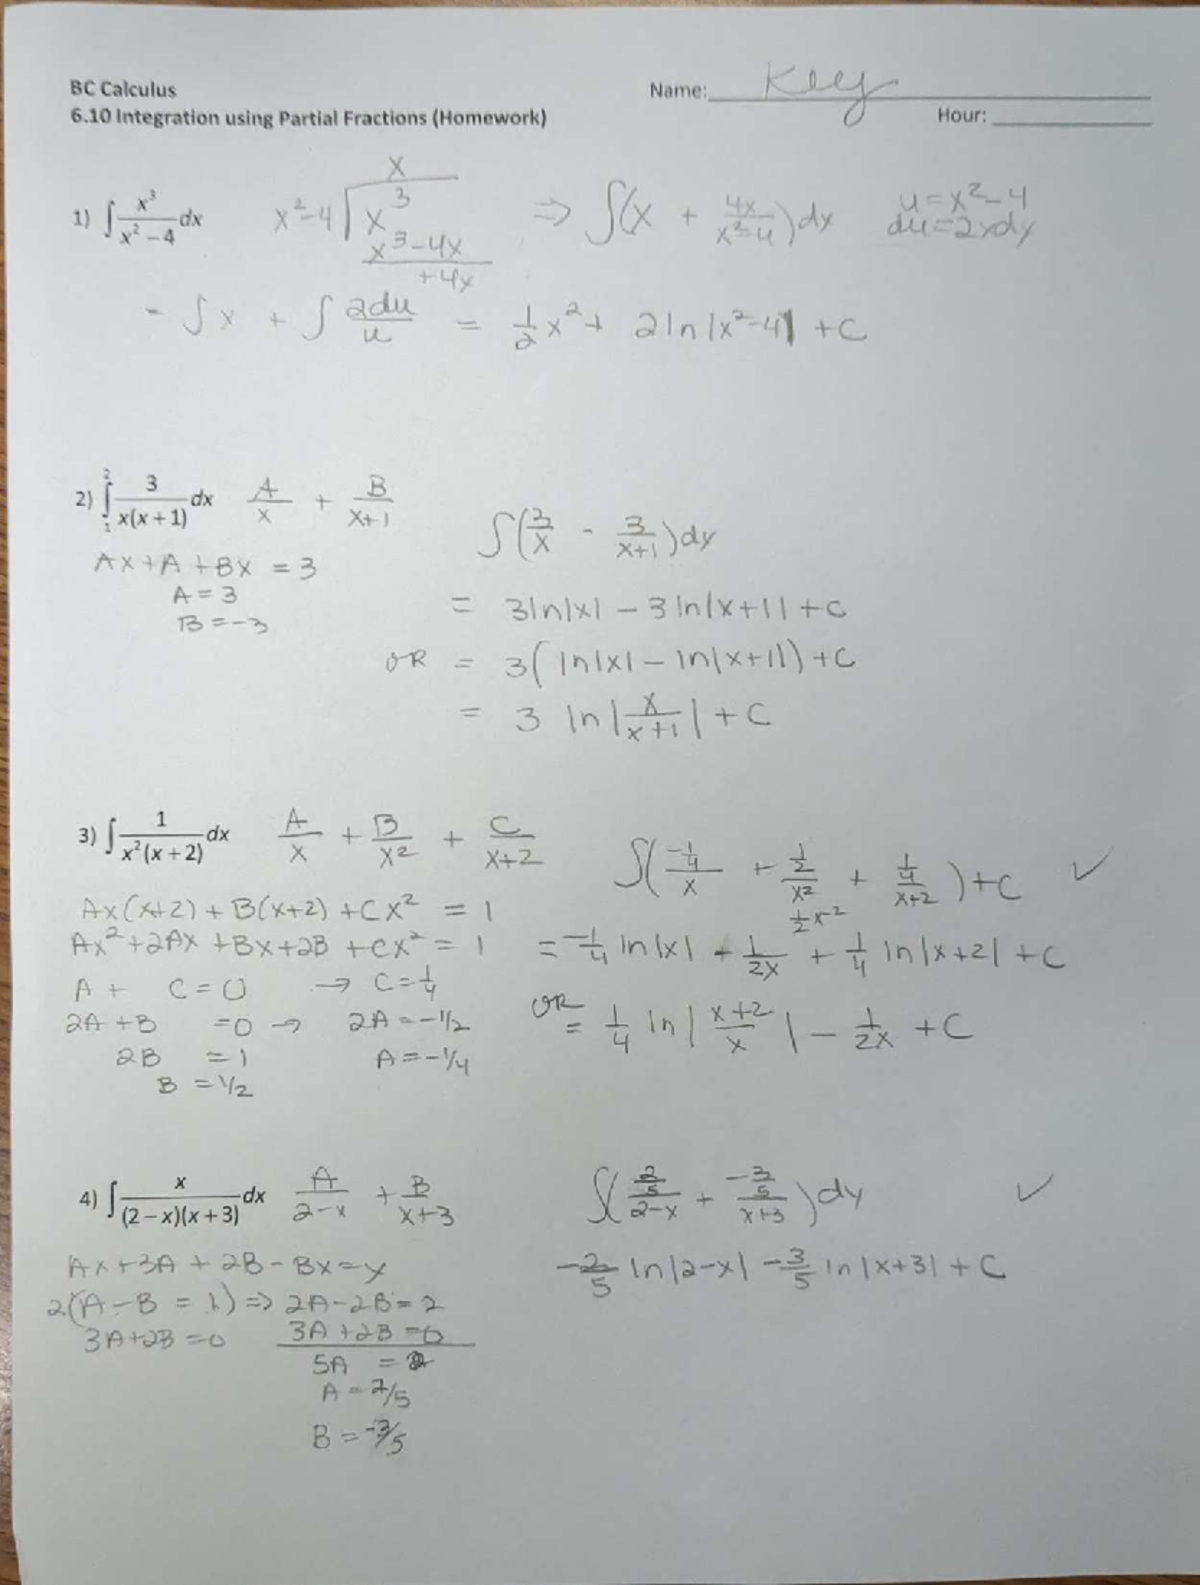 BC Calculus
Name: Key
6.10 Integration using Partial Fractions (Homework)
Hour:
1) ∫ x³/(x² – 4) dx
x
x²-4 √ x³
x³-4x
+4x
⇒ ∫(x + 4x/(x²-4)) dx
u = x²-4
du = 2xdx
= ∫x + ∫ 2du/u = 1/2 x² + 2 ln|x²-4| + C
2) ∫₁² 3/(x(x + 1)) dx
A/x + B/(x+1)
Ax + A + Bx = 3
A = 3
B = -3
∫(3/x - 3/(x+1)) dx
= 3ln|x| - 3 ln|x+1| + C
OR = 3(ln|x| - ln|x+1|) + C
= 3 ln|x/(x+1)| + C
3) ∫ 1/(x²(x + 2)) dx
A/x + B/x² + C/(x+2)
Ax(x+2) + B(x+2) + Cx² = 1
Ax² + 2Ax + Bx + 2B + Cx² = 1
A + C = 0 → C = 1/4
2A + B = 0 → 2A = -1/2
2B = 1 A = -1/4
B = 1/2
∫((-1/4)/x + (1/2)/x² + (1/4)/(x+2)) + C ✓
1/2 x⁻²
= -1/4 ln|x| - 1/2x + 1/4 ln|x+2| + C
OR = 1/4 ln|(x+2)/x| - 1/2x + C
4) ∫ x/((2 – x)(x + 3)) dx
A/(2-x) + B/(x+3)
Ax + 3A + 2B - Bx = x
2(A - B = 1) ⇒ 2A - 2B = 2
3A + 2B = 0 3A + 2B = 0
5A = 2
A = 2/5
B = -3/5
∫((2/5)/(2-x) + (-3/5)/(x+3)) dx ✓
-2/5 ln|2-x| - 3/5 ln|x+3| + C